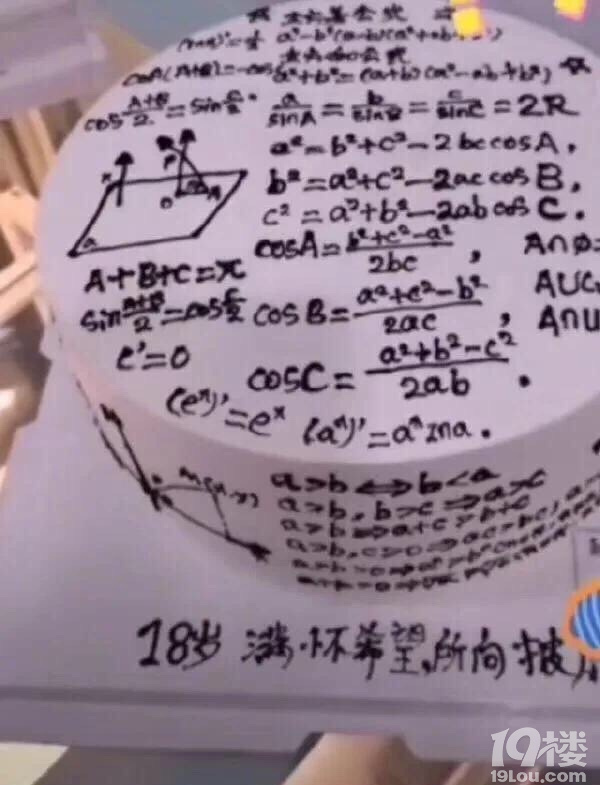 a³-b³=(a-b)(a²+ab
a³+b³=(a+b)(a²-ab+b²)
cos(A+B)/2=sinC/2
a/sinA=b/sinB=c/sinC=2R
a²=b²+c²-2bccosA,
b²=a²+c²-2accosB,
c²=a²+b²-2abcosC.
cosA=(b²+c²-a²)/2bc,
A∩∅=
A+B+C=π
sin(A+B)/2=cosC/2
cosB=(a²+c²-b²)/2ac,
A∪
A∩∪
c'=0
cosC=(a²+b²-c²)/2ab.
(eˣ)'=eˣ
(aˣ)'=aˣlna.
a>b⟺b<a
a>b,b>c⟹a>c
a>b⟹a+c>b+c
a>b,c>0⟹ac>bc
18岁 满怀希望,所向披
19楼
19lou.com